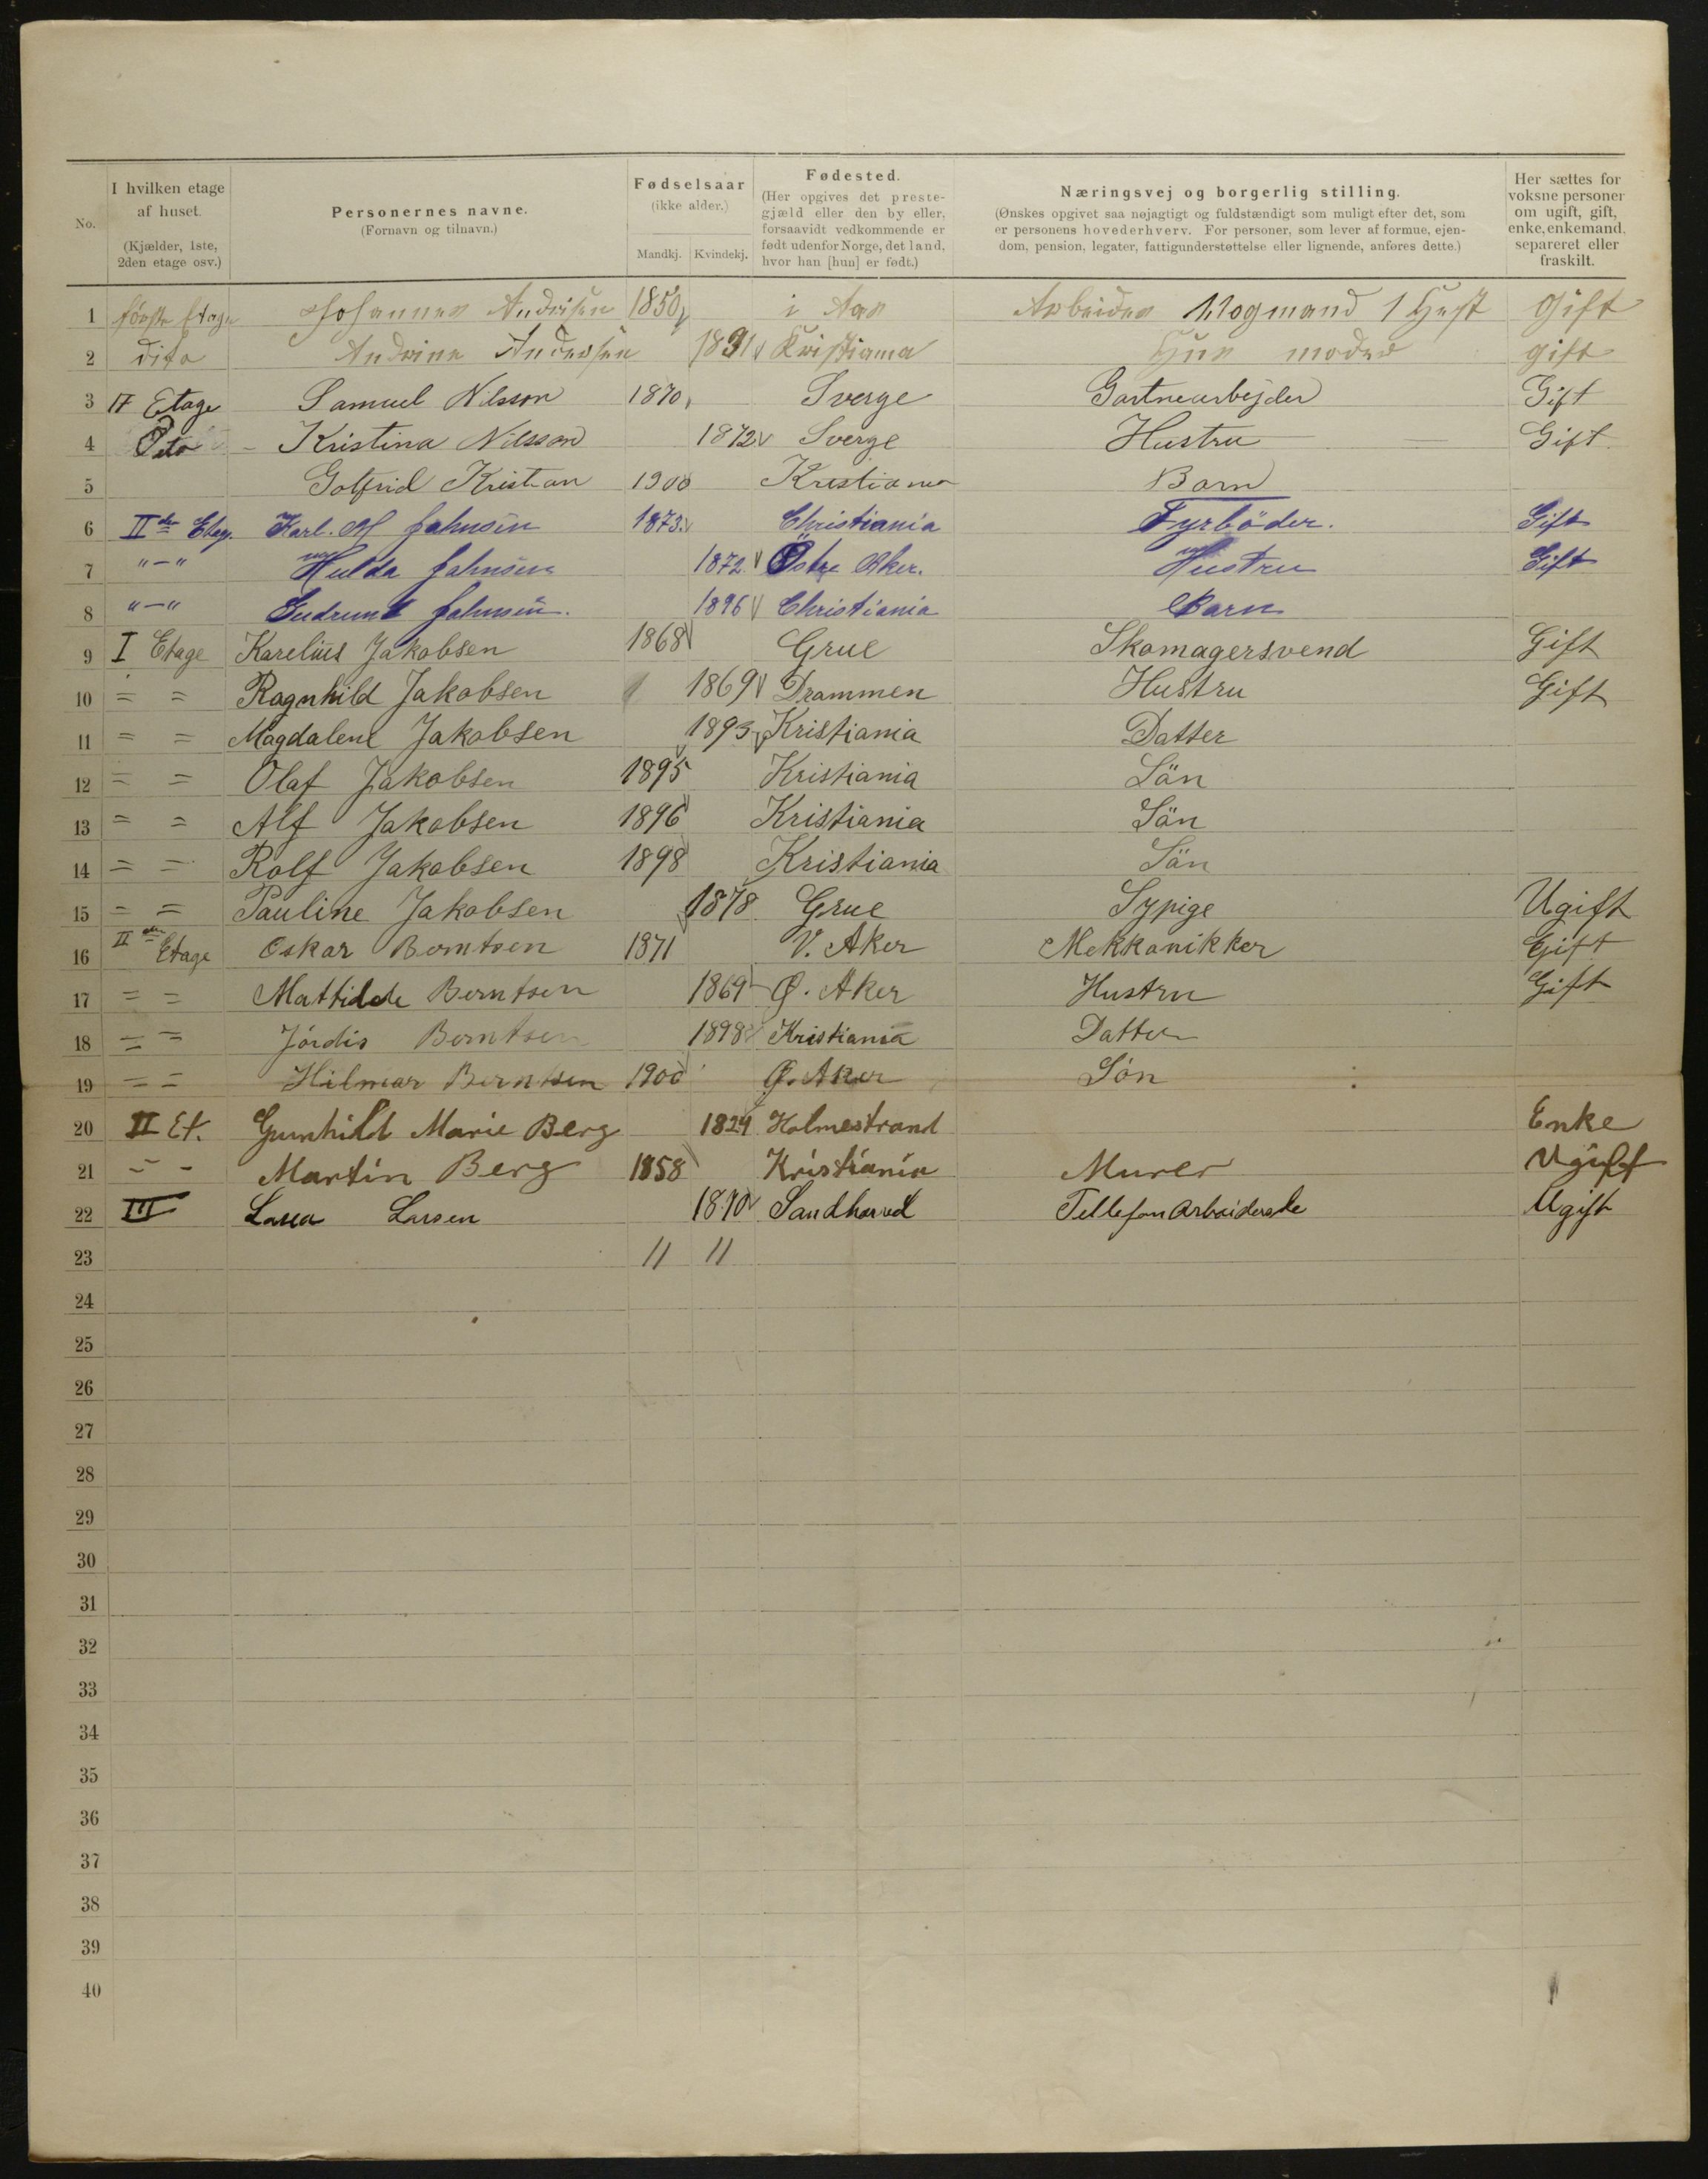 No.
I hvilken etage af huset.
(Kjælder, 1ste, 2den etage osv.)
Personernes navne.
(Fornavn og tilnavn.)
Fødselsaar
(ikke alder.)
Mandkj. Kvindekj.
Fødested.
(Her opgives det prestegjæld eller den by eller, forsaavidt vedkommende er født udenfor Norge, det land, hvor han [hun] er født.)
Næringsvej og borgerlig stilling.
(Ønskes opgivet saa nøjagtigt og fuldstændigt som muligt efter det, som er personens hovederhverv. For personer, som lever af formue, ejendom, pension, legater, fattigunderstøttelse eller lignende, anføres dette.)
Her sættes for voksne personer om ugift, gift, enke, enkemand, separeret eller fraskilt.
1 første Etage Johannes Andersen 1850 i Aas Arbeider 1 Hest Gift
2 dito Andrine Andersen Kristiania Hus moder gift
3 Etage Samuel Nilsson 1870 Sverge Gartnerarbejder Gift
4 Dito - Kristina Nilsson 1872 Sverge Hustru Gift
5 Gotfrid Kristian 1900 Kristiania Barn
6 II den Etag. Karl. M Jahnsen 1873. Christiania Fyrböder. Gift
7 "-" Hulda Jahnsen 1872. Östre Aker. Hustru Gift
8 "-" Gudrund Jahnsen. 1896 Christiania Barn
9 I Etage Karelius Jakobsen 1868 Grue Skomagersvend Gift
10 = = Ragnhild Jakobsen 1869 Drammen Hustru Gift
11 = = Magdalene Jakobsen 1893 Kristiania Datter
12 = = Olaf Jakobsen 1895 Kristiania Sän
13 = = Alf Jakobsen 1896 Kristiania Sän
14 = = Rolf Jakobsen 1898 Kristiania Sän
15 = = Pauline Jakobsen 1878 Grue Sypige Ugift
16 II den Etage Oskar Berntsen 1871 V. Aker Mekkanikker Gift
17 = = Mathilde Berntsen 1869 Ø. Aker Hustru Gift
18 = = Jórdis Berntsen 1898 Kristiania Datter
19 = = Hilmar Berntsen 1900 Ø. Aker Són
20 II Et. Gunhild Marie Berg 1824 Holmestrand Enke
21 - - Martin Berg 1858 Kristiania Murer Ugift
22 III Larsen 1870 Sandherred Tellefon Arbeiderske Ugift
23 11 11
24
25
26
27
28
29
30
31
32
33
34
35
36
37
38
39
40